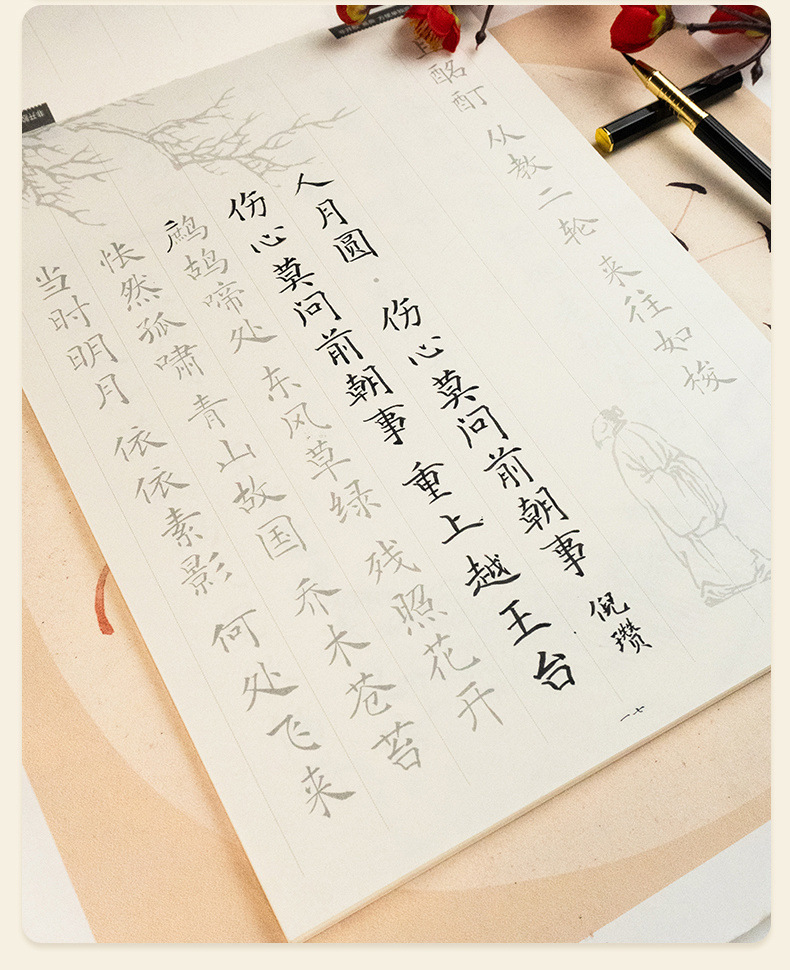 酩酊 从教二轮 来往如梭
人月圆·伤心莫问前朝事 倪瓒
伤心莫问前朝事 重上越王台
鹧鸪啼处 东风草绿 残照花开
怅然孤啸 青山故国 乔木苍苔
当时明月 依依素影 何处飞来
一七